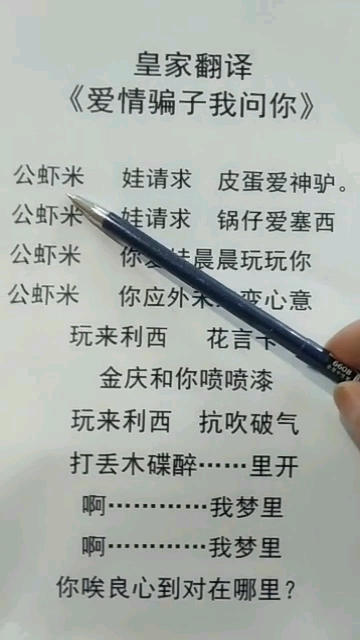 皇家翻译
《爱情骗子我问你》
公虾米 娃请求 皮蛋爱神驴。
公虾米 娃请求 锅仔爱塞西
公虾米 你 晨晨玩玩你
公虾米 你应外 变心意
玩来利西 花言
金庆和你喷喷漆
玩来利西 抗吹破气
打丢木碟醉……里开
啊…………我梦里
啊…………我梦里
你唉良心到对在哪里？
6608